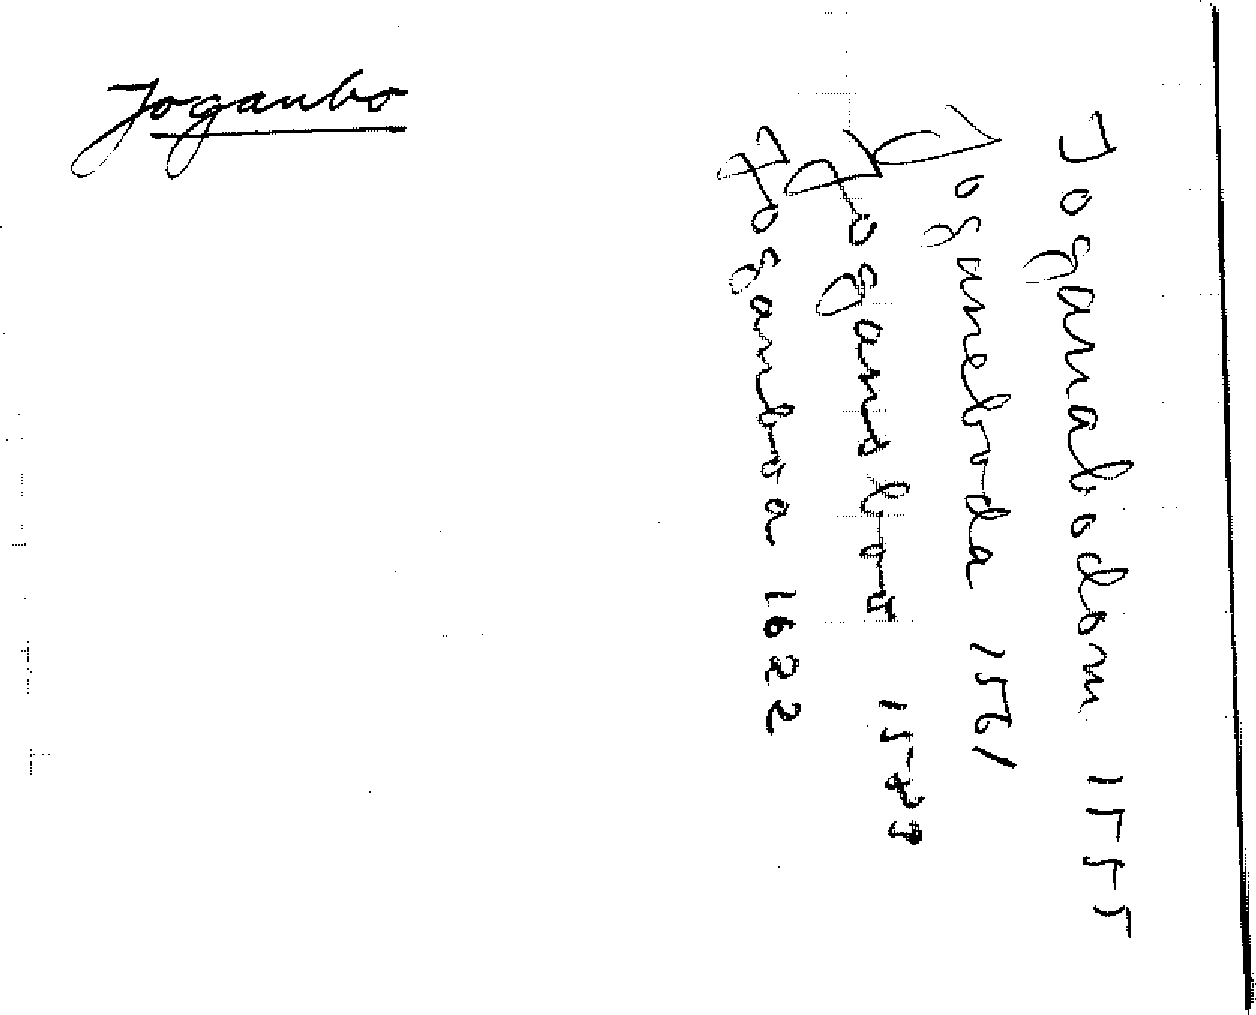 Joganbo
Joganabodom 1555
Joguneboda 1561
Jogandbov 1589
Joganboa 1622